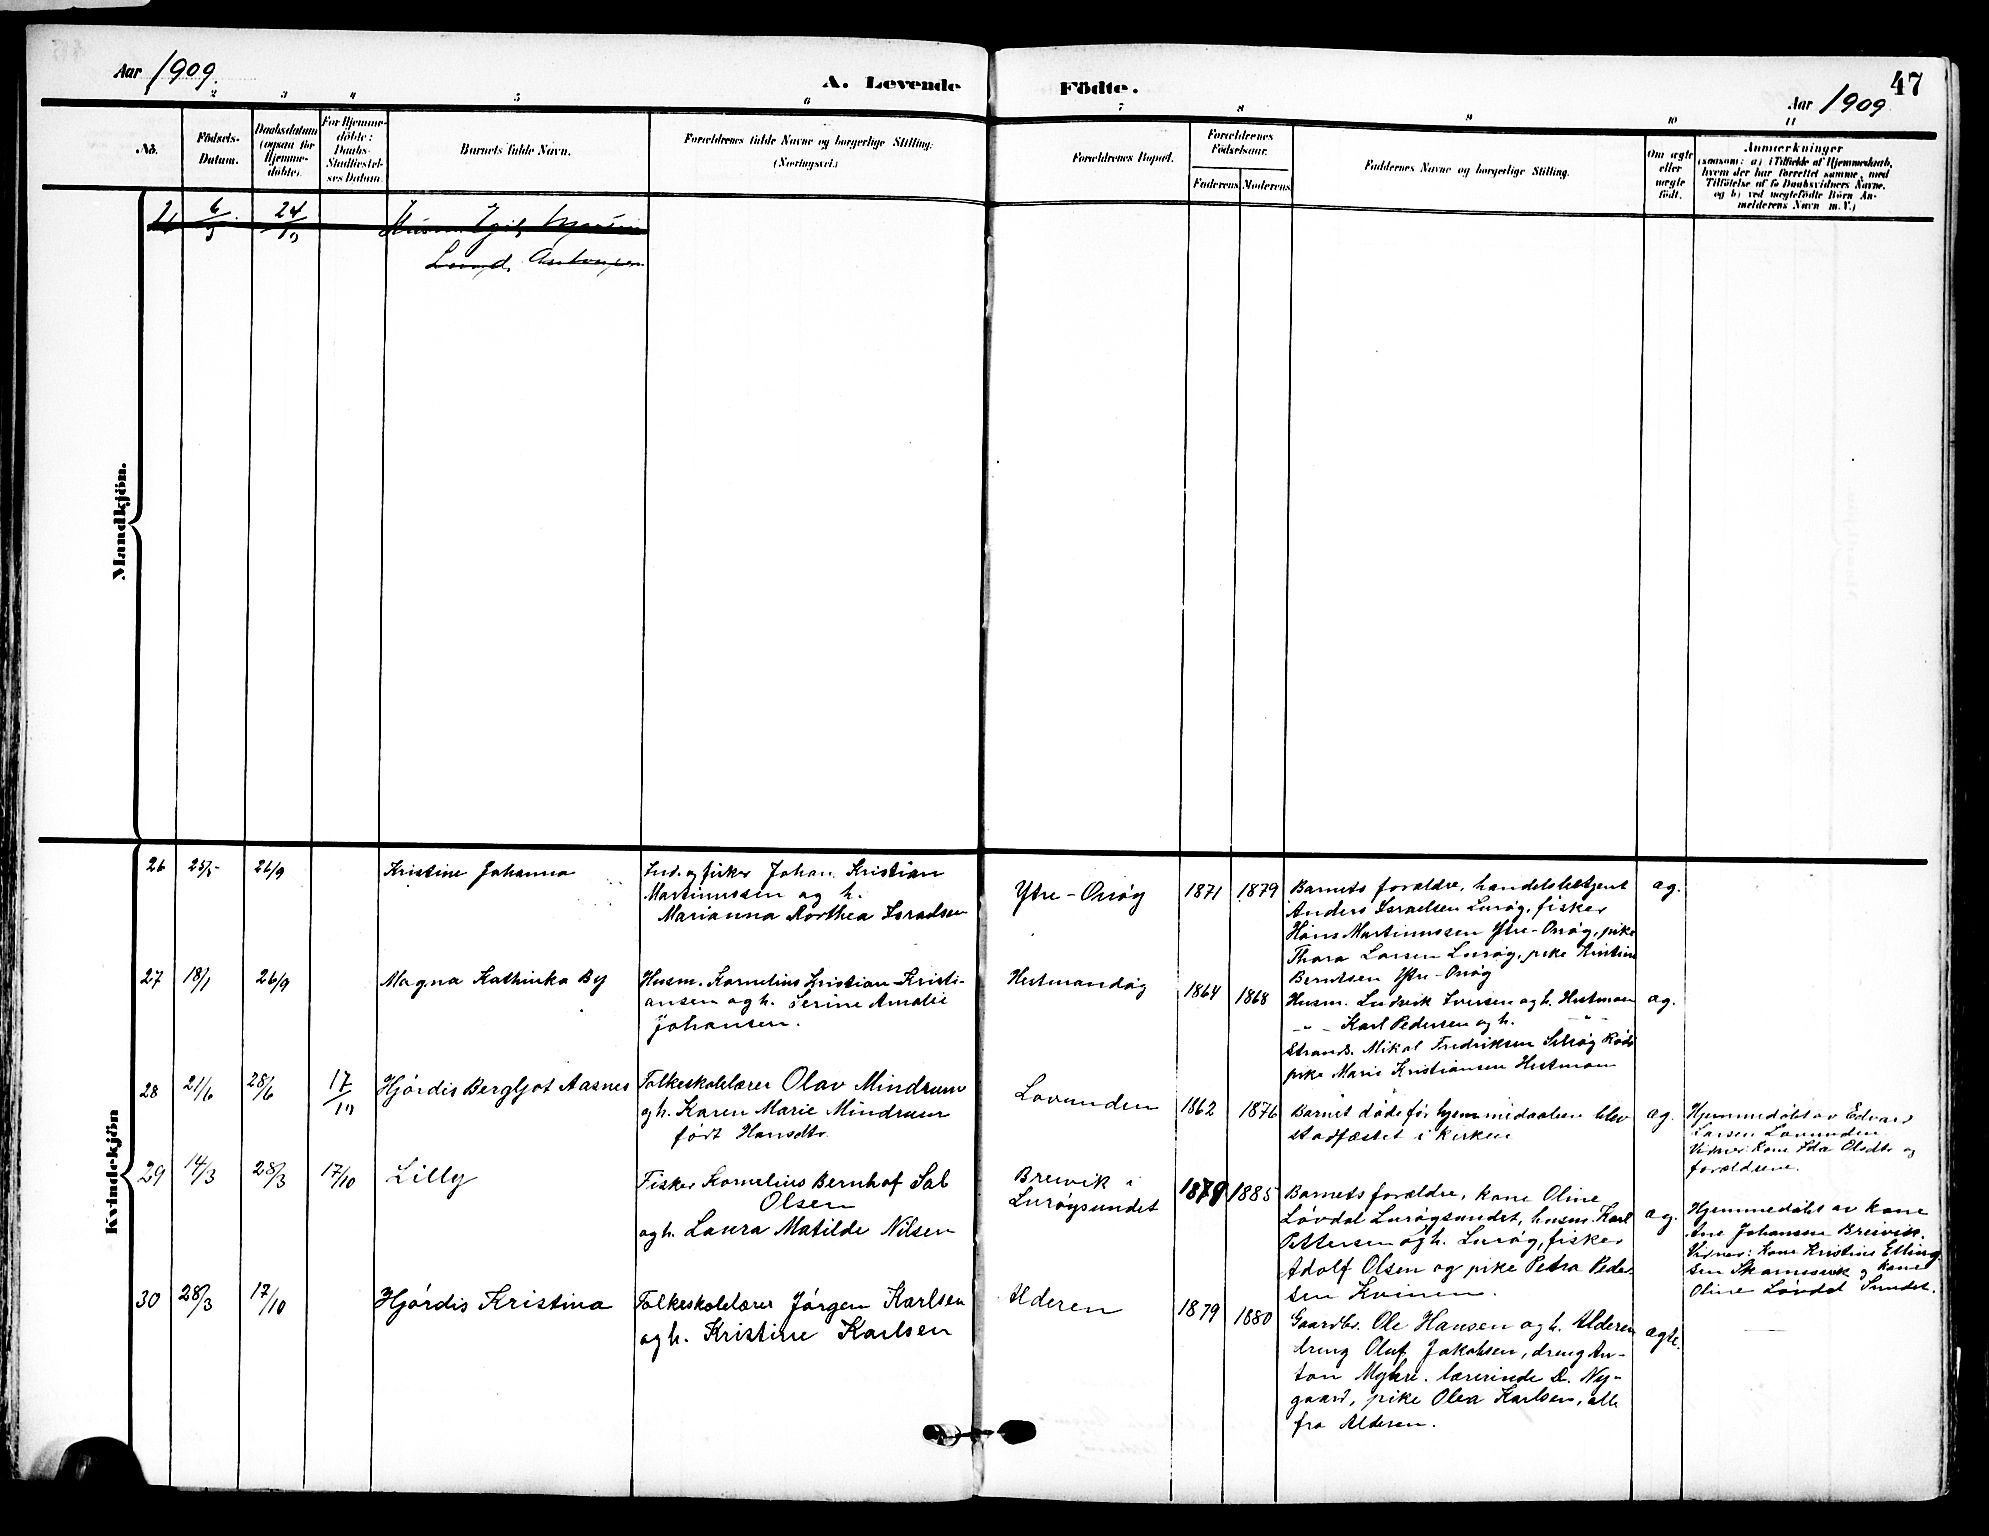 Aar 1909.
A. Levende Födte.
47
Aar 1909
2 3 4 5 6 7 8 9 10 11
No.
Födsels-
Datum.
Daabsdatum
(ogsaa for
Hjemme-
döbte).
For Hjemme-
döbte:
Daabs-
Stadfæstel-
ses Datum.
Barnets fulde Navn.
Forældrenes fulde Navne og borgerlige Stilling:
(Næringsvei.)
Forældrenes Bopæl.
Forældrenes
Födselsaar.
Faderens
Moderens
Faddernes Navne og borgerlige Stilling.
Om ægte
eller
uægte
födt.
Anmærkninger
(saasom: a) i Tilfælde af Hjemmedaab,
hvem der har forrettet samme, med
Tilföielse af to Daabsvidners Navne,
og b) ved uægtefödte Börn An-
melderens Navn m. V.)
Mandkjön.
6/5 24/10
Egil
Kvindekjön
26 25/5 26/9 Kristine Johanna
Ind. og fisker Johan Kristian
Martinussen og h.
Marianna Dorthea Israelsen
Ytre-Onøy 1871 1879
Barnets forældre, handelsbetjent
Anders Israelsen Lurøy, fisker
Hans Martinussen Ytre-Onøy, pike
Thora Larsen Lurøy, pike Kristine
Berntsen Ytre-Onøy
æg.
27 18/7 26/9 Magna Kathinka By
Husm. Kornelius Kristian Kristi-
ansen og h. Serine Amalie
Johansen.
Hestmandøy 1864 1868
Husm. Ludvik Iversen og h. Hestmon
- " - Karl Pedersen og h. - " -
Strands. Mikal Fredriksen Selsøy
pike Maris Kristiansen Hestmon
æg.
28 21/6 28/6 17/10 Hjördis Bergljot Aasnes
Folkeskolelærer Olav Mindrum
og h. Karen Marie Mindrum
født Hansdtr.
Lovunden 1862 1876
Barnet døde før hjemmedaaben blev
stadfæstet i kirken
æg.
Hjemmedøbt av Edvard
Larsen Lovunden
Vidner: Kone Ida Olsdtr og
forældrene.
29 14/3 28/3 17/10 Lilly
Fisker Kornelius Bernhof Sal
Olsen
og h. Laura Matilde Nilsen
Breivik i
Lurøysundet 1879 1885
Barnets forældre, kone Oline
Løvdal Lurøysundet, husm. Karl
Pettersen og h. Lurøy, fisker
Adolf Olsen og pike Petra Peder-
sen Kvinen.
æg.
Hjemmedøbt av kone
Ane Johansen Breivik.
Vidner: Kone Kristine Elling
sen Skarnesvik og kone
Oline Løvdal Sundet.
30 28/3 17/10 Hjórdis Kristina
Folkeskolelærer Jørgen Karlsen
og h. Kristine Karlsen
Alderen 1879 1880
Gaardbr. Ole Hansen og h. Alderen
dreng Oluf Jakobsen, dreng An-
ton Myhre, lærerinde D. Ny-
gaard, pike Olea Karlsen, alle
fra Alderen.
ægte.